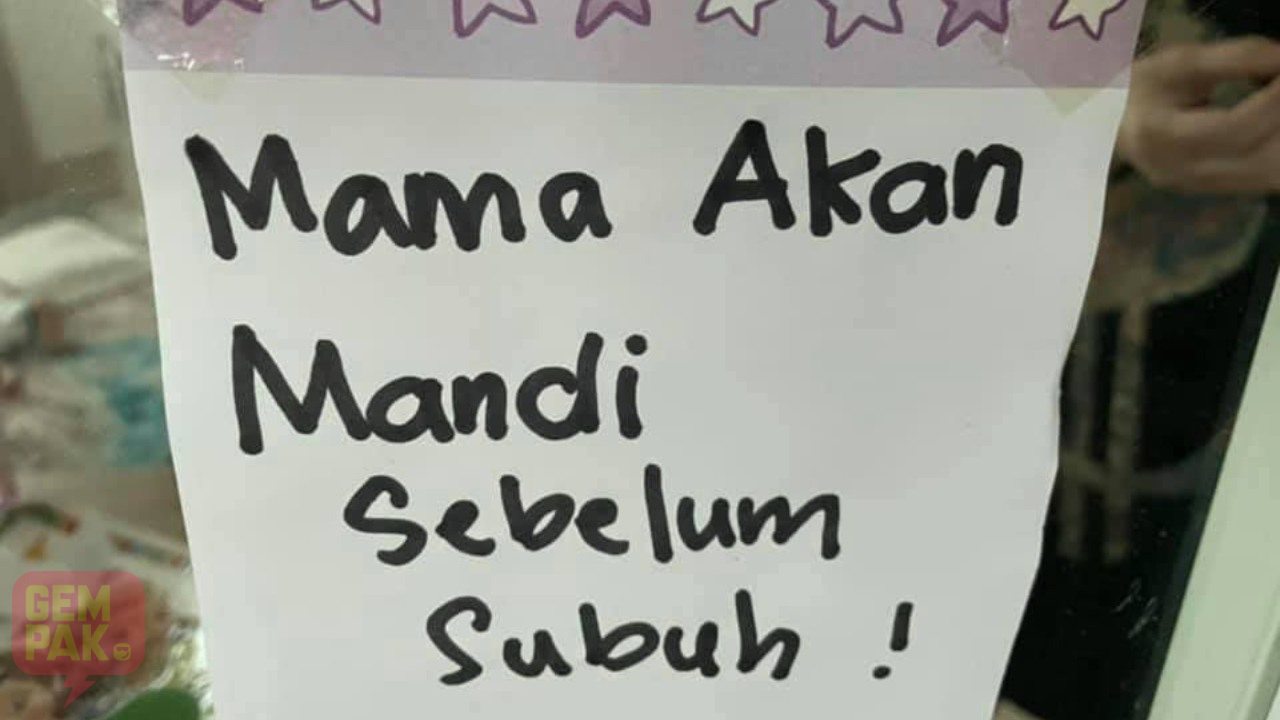 Mama Akan
Mandi
Sebelum
Subuh !
GEM
PAK